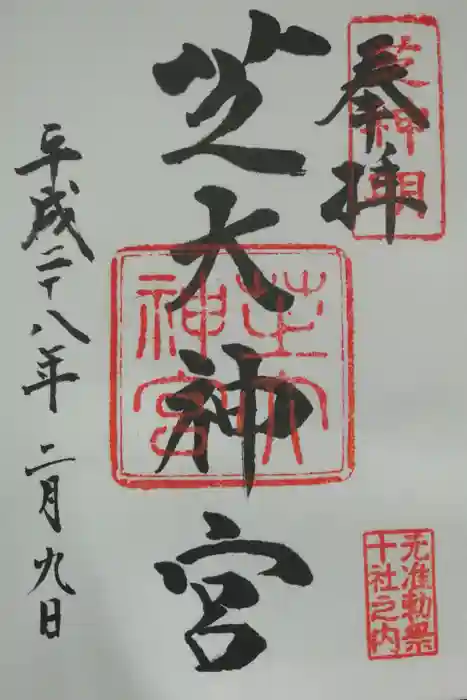 奉拝
芝神明
芝大神宮
芝大神宮
平成二十八年 二月九日
元准勅祭
十社之内